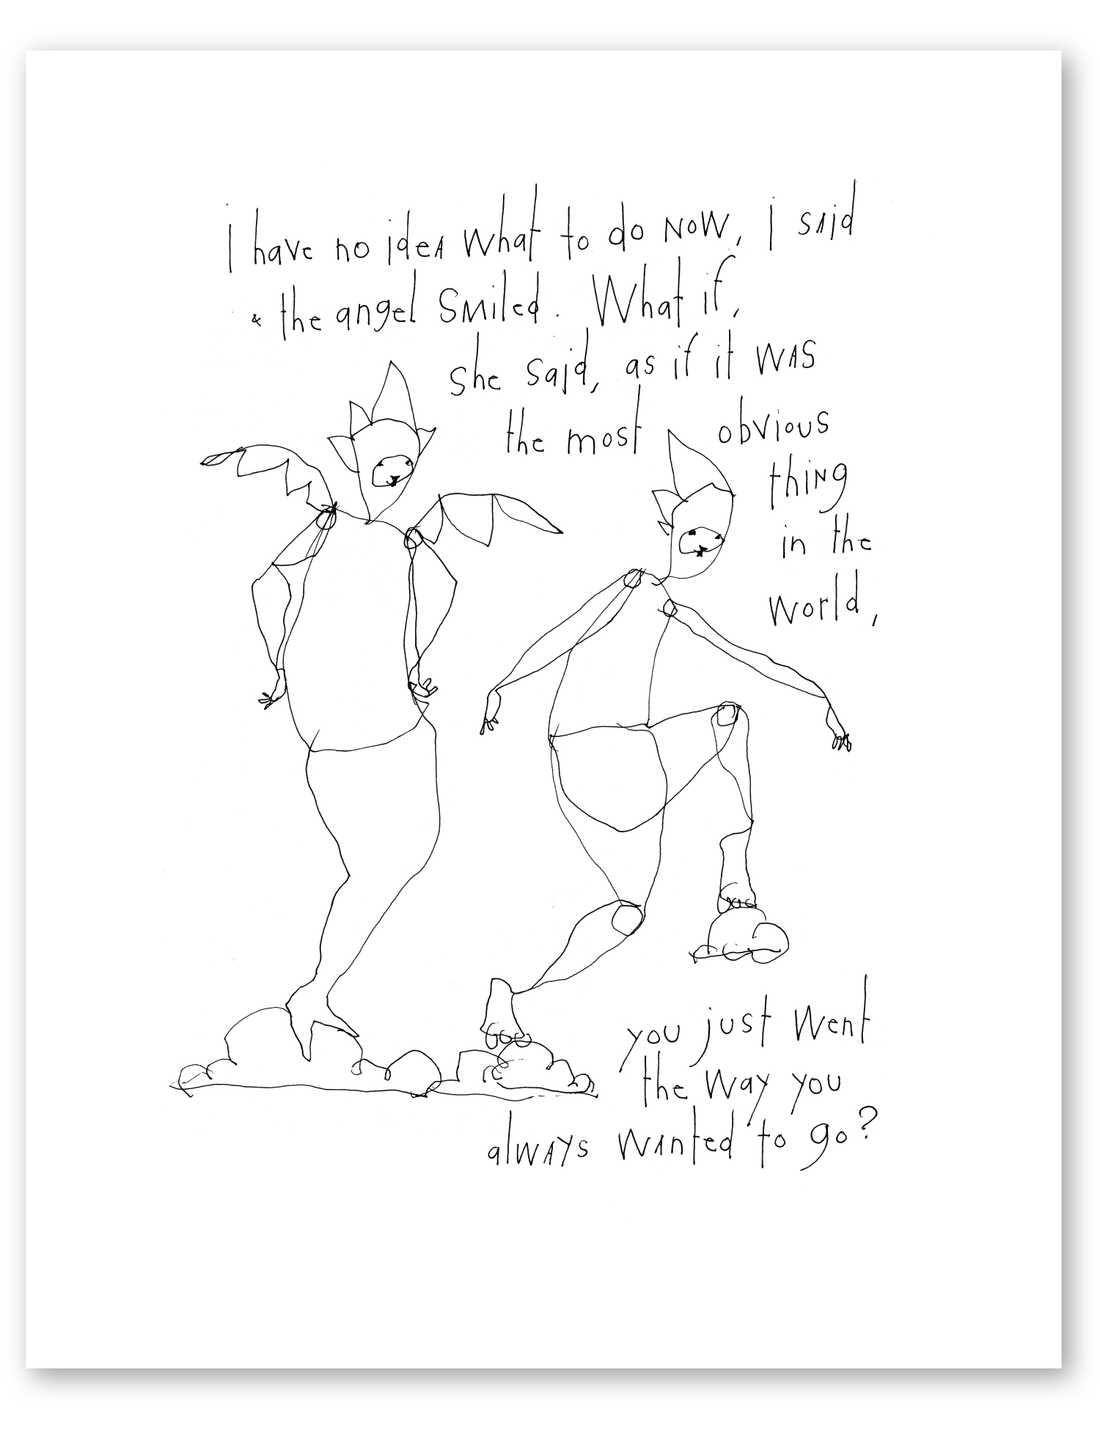 i have no idea what to do now, i said
& the angel smiled. What if,
she said, as if it was
the most obvious
thing
in the
world,
you just went
the way you
always wanted to go?